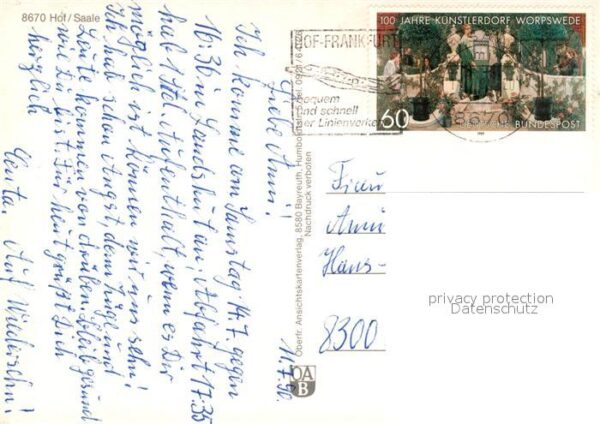 8670 Hof/Saale
11.7.90.
Liebe Anni!
Ich komme am Samstag 14.7. gegen
16:36 in Landshut an, Abfahrt 17.35
hab 1 Std. Aufenthalt, wenn es Dir
möglich ist können wir uns sehn!
Ich hab schon Angst, denn Züge und
Leute kommen von drüben. Bleib gesund
wie Du bist. Für heut grüßt Dich
herzlich
Auf Wiedersehn!
Oberfr. Ansichtskartenverlag, 8580 Bayreuth, Humboldtstr.
Nachdruck verboten
OA
B
HOF-FRANKFURT
bequem
und schnell
per Linienverkehr
100 JAHRE KÜNSTLERDORF WORPSWEDE
60
DEUTSCHE BUNDESPOST
Frau
Anni
Hans-
8300
privacy protection
Datenschutz